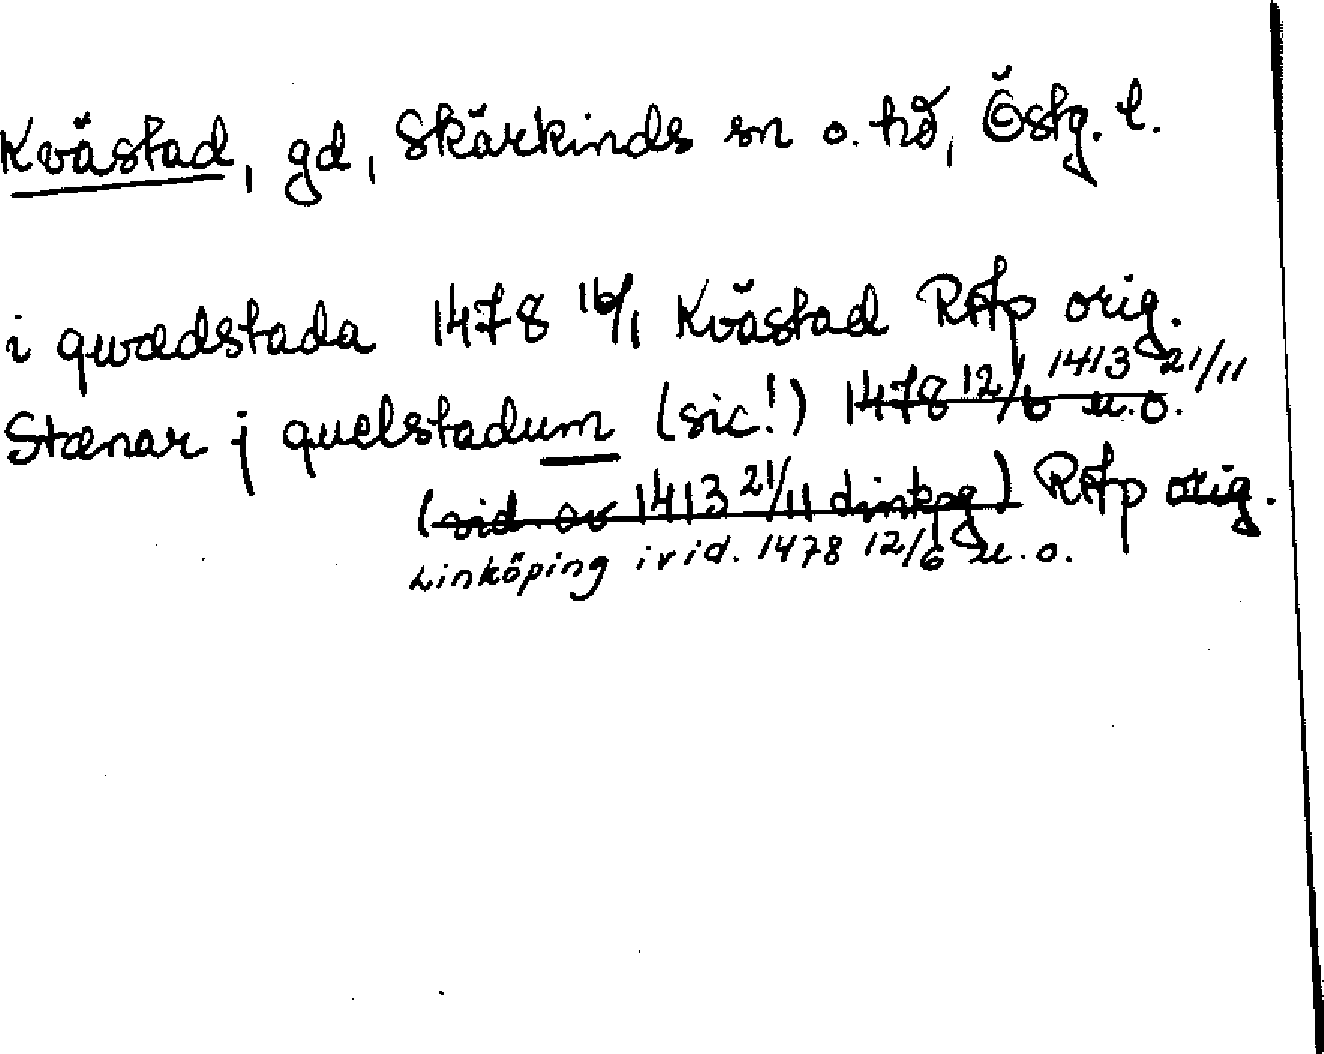 Kvästad, gd, Skärkinds sn o. hd, Östg. l.
i qwædstada 1478 16/1 Kvästad RAp orig.
Stænar j quelstadum (sic!) 1478 12/6 u.o. 1413 21/11
(vid. av 1413 21/11 Linkpg) RAp orig.
Linköping i vid. 1478 12/6 u.o.